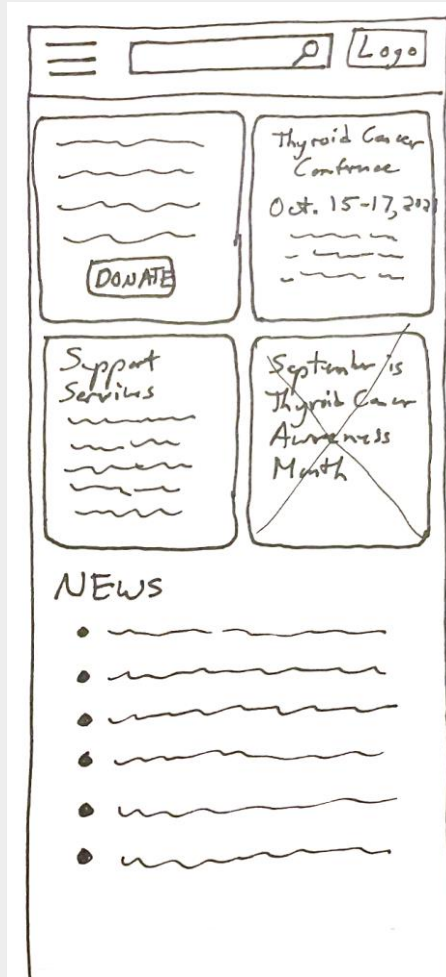 Logo
DONATE
Thyroid Cancer
Conference
Oct. 15-17, 2021
Support
Services
September is
Thyroid Cancer
Awareness
Month
NEWS